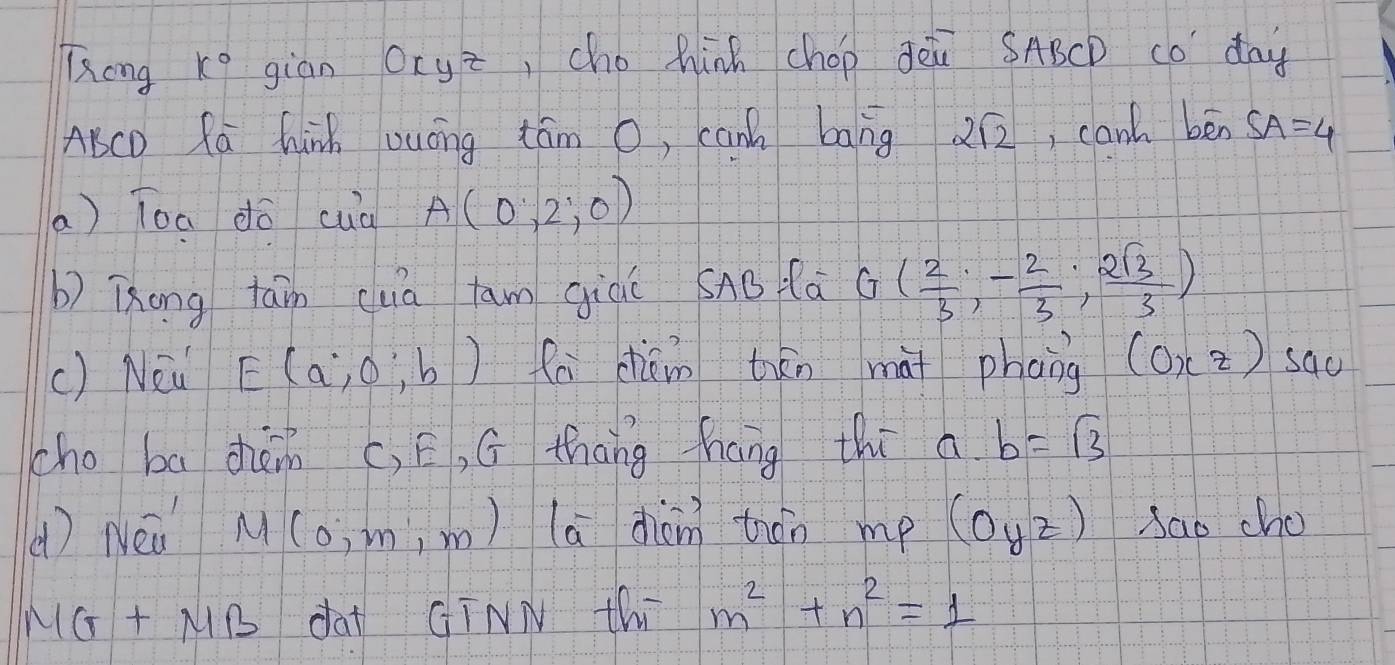 Trong kº gian Oxyz, cho hình chóp đều SABCD có đáy
ABCD là hình vuông tâm O, cạnh bằng 2√2, cạnh bên SA=4
a) Toạ độ của A(0;2;0)
b) Trọng tâm của tam giác SAB là G(2/3; -2/3; 2√3/3)
c) Nếu E(a;0;b) là điểm trên mặt phẳng (Oxz) sao
cho ba điểm C,E,G thẳng hàng thì a.b=√3
d) Nếu M(0;m;m) là điểm trên mp (Oyz) sao cho
MG + MB đạt GTNN thì m² + n² = 1